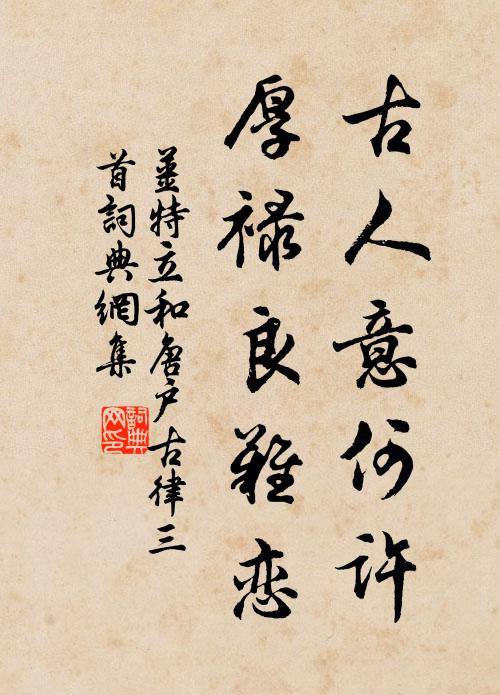 古人意何许
厚禄良难恋
姜特立和唐户古律三
首詞典網集
詞典
网印